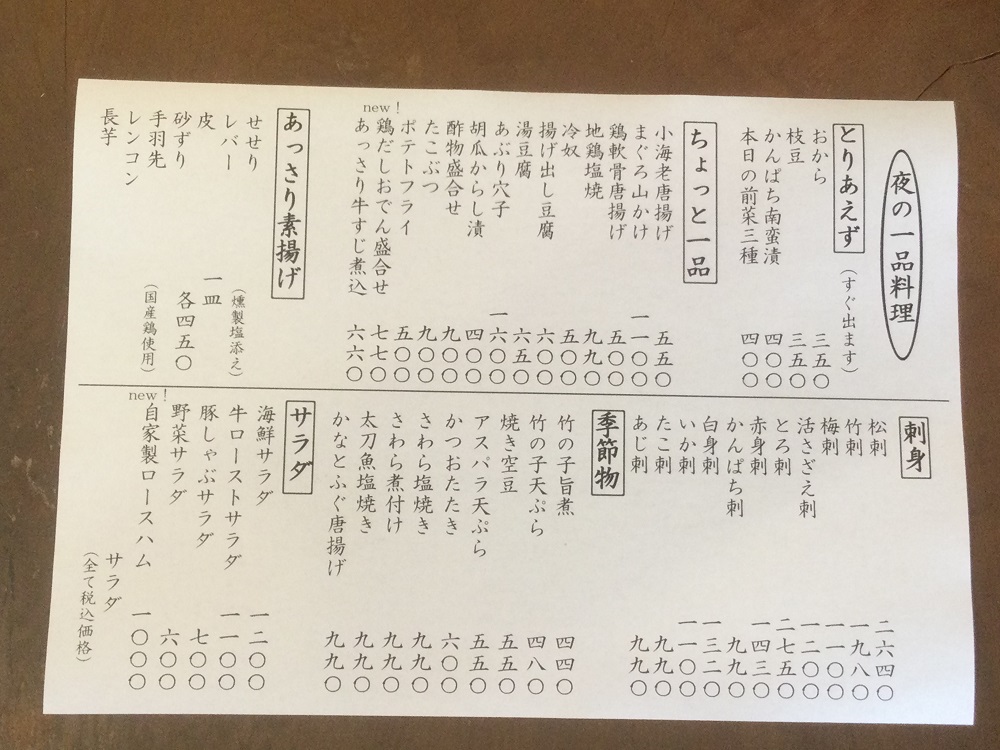 夜の一品料理
とりあえず（すぐ出ます）
おから 三五〇
枝豆 三五〇
かんぱち南蛮漬 四〇〇
本日の前菜三種 四〇〇
ちょっと一品
小海老唐揚げ 五五〇
まぐろ山かけ 一一〇〇
鶏軟骨唐揚げ 五〇〇
地鶏塩焼 九九〇
冷奴 五〇〇
揚げ出し豆腐 六〇〇
湯豆腐 六五〇
あぶり穴子 一六〇〇
胡瓜からし漬 四〇〇
酢物盛合せ 九〇〇
たこぶつ 九〇〇
ポテトフライ 五〇〇
new！
鶏だしおでん盛合せ 七七〇
あっさり牛すじ煮込 六六〇
あっさり素揚げ
せせり （燻製塩添え）
レバー
皮 一皿
砂ずり 各四五〇
手羽先 （国産鶏使用）
レンコン
長芋
刺身
松刺 二六四〇
竹刺 一九八〇
梅刺 一一〇〇
活さざえ刺 一二〇〇
とろ刺 二七五〇
赤身刺 一四三〇
かんぱち刺 九九〇
白身刺 一三二〇
いか刺 一一〇〇
たこ刺 九九〇
あじ刺 九九〇
季節物
竹の子旨煮 四四〇
竹の子天ぷら 四八〇
焼き空豆 五五〇
アスパラ天ぷら 五五〇
かつおたたき 六〇〇
さわら塩焼き 九九〇
さわら煮付け 九九〇
太刀魚塩焼き 九九〇
かなとふぐ唐揚げ 九九〇
サラダ
海鮮サラダ 一二〇〇
牛ローストサラダ 一一〇〇
豚しゃぶサラダ 七〇〇
野菜サラダ 六〇〇
new！
自家製ロースハム 一〇〇〇
サラダ
（全て税込価格）